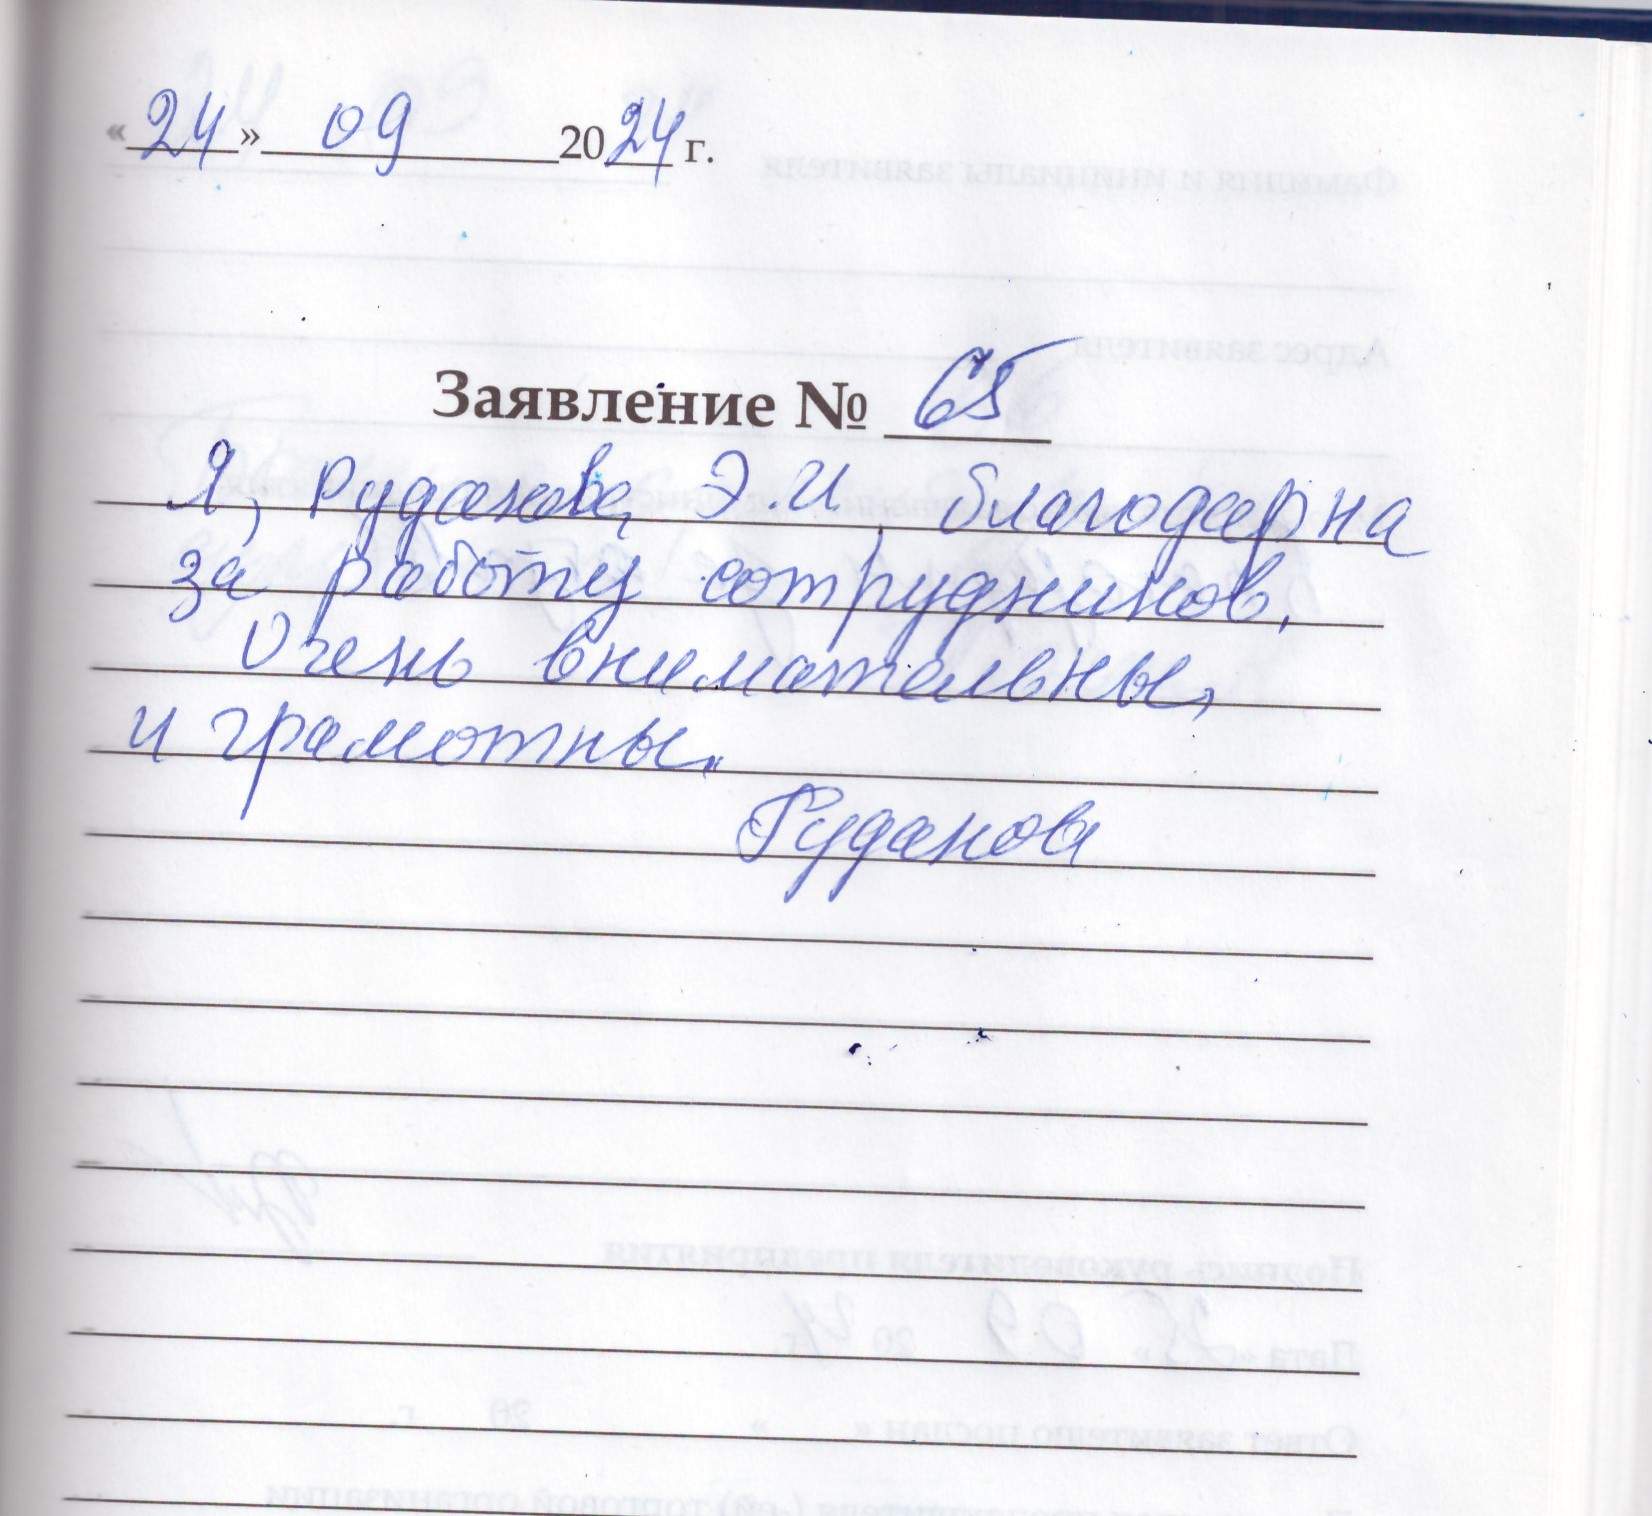 «24» 09 2024 г.
Заявление № 65
Я, Руданова Э.И, благодарна
за работу сотрудников.
Очень внимательны,
и грамотны.
Руданова